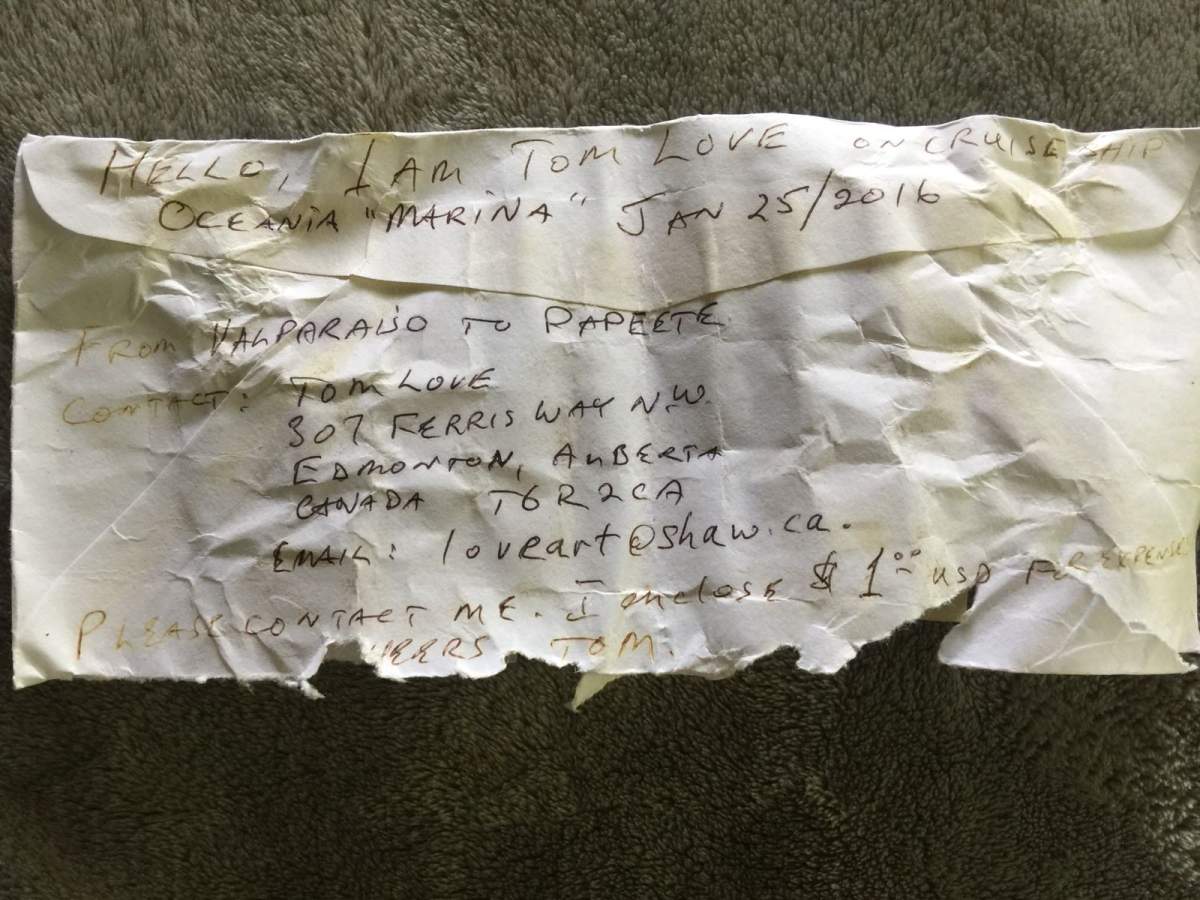 HELLO, I AM TOM LOVE ON CRUISE SHIP
OCEANIA "MARINA" JAN 25/2016
FROM VALPARAISO TO PAPEETE
CONTACT: TOM LOVE
307 FERRIS WAY N.W.
EDMONTON, ALBERTA
CANADA T6R 2CA
EMAIL: loveart@shaw.ca.
PLEASE CONTACT ME. I enclose $1.00 USD FOR EXPENSE
TOM.